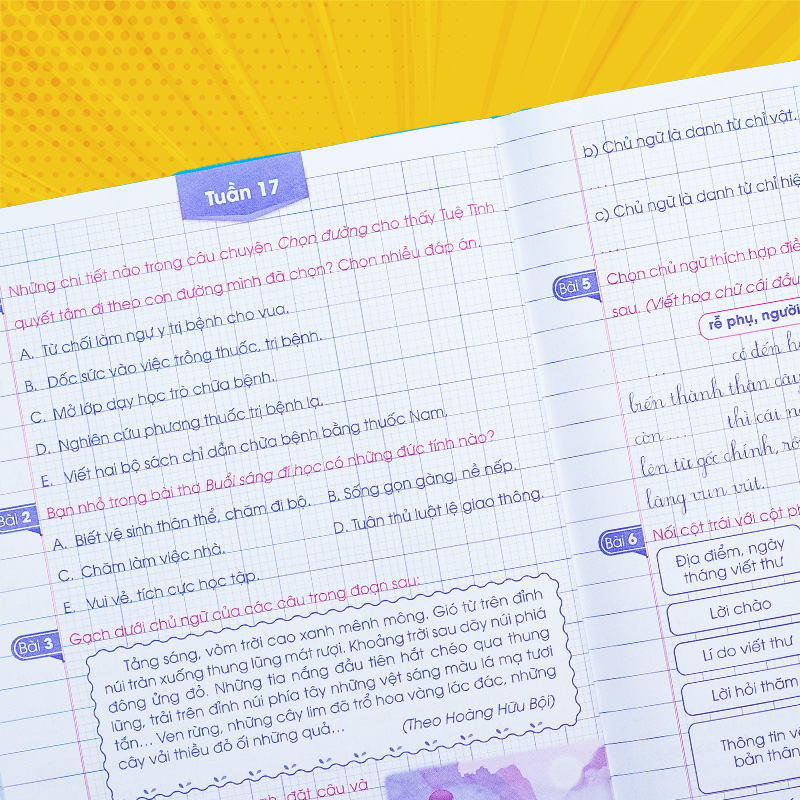 Tuần 17
Những chi tiết nào trong câu chuyện Chọn đường cho thấy Tuệ Tĩnh
quyết tâm đi theo con đường mình đã chọn? Chọn nhiều đáp án.
A. Từ chối làm ngự y trị bệnh cho vua.
B. Dốc sức vào việc trồng thuốc, trị bệnh.
C. Mở lớp dạy học trò chữa bệnh.
D. Nghiên cứu phương thuốc trị bệnh lạ.
E. Viết hai bộ sách chỉ dẫn chữa bệnh bằng thuốc Nam.
Bài 2
Bạn nhỏ trong bài thơ Buổi sáng đi học có những đức tính nào?
A. Biết vệ sinh thân thể, chăm đi bộ. B. Sống gọn gàng, nề nếp.
C. Chăm làm việc nhà. D. Tuân thủ luật lệ giao thông.
E. Vui vẻ, tích cực học tập.
Bài 3
Gạch dưới chủ ngữ của các câu trong đoạn sau:
Tảng sáng, vòm trời cao xanh mênh mông. Gió từ trên đỉnh
núi tràn xuống thung lũng mát rượi. Khoảng trời sau dãy núi phía
đông ửng đỏ. Những tia nắng đầu tiên hắt chéo qua thung
lũng, trải trên đỉnh núi phía tây những vệt sáng màu lá mạ tươi
tắn... Ven rừng, những cây lim đã trổ hoa vàng lác đác, những
cây vải thiều đỏ ối những quả...
(Theo Hoàng Hữu Bội)
đặt câu và
b) Chủ ngữ là danh từ chỉ vật.
....
c) Chủ ngữ là danh từ chỉ
....
Bài 5
Chọn chủ ngữ thích hợp
sau. (Viết hoa chữ cái đầu
rễ phụ, người
.... cổ đến
biến thành thân cây
còn .... thì cái
lên từ gốc chính,
lăng vun vút.
Bài 6
Nối cột trái với cột
Địa điểm, ngày
tháng viết thư
Lời chào
Lí do viết thư
Lời hỏi thăm
Thông tin về
bản thân